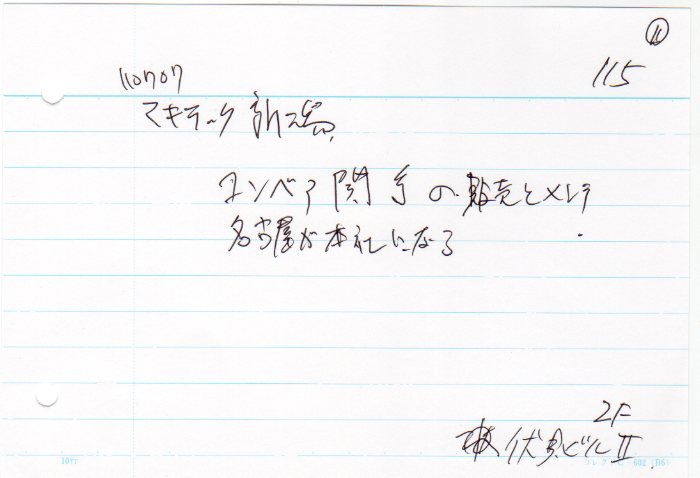 ⑪
115
110707
マキテック 新潟
コンベア関系の販売とメンテ
名古屋が本社になる
2F
伏見ビルⅡ
10行
コレクト C-602 (B6)